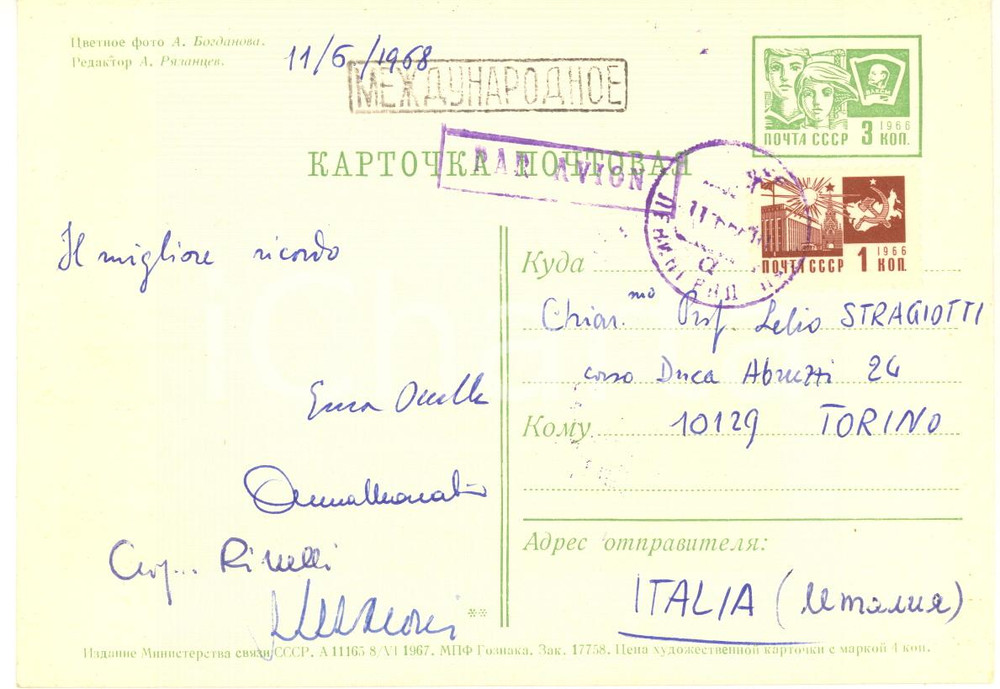 Цветное фото А. Богданова.
Редактор А. Рязанцев.
11/6/1968
МЕЖДУНАРОДНОЕ
PAR AVION
КАРТОЧКА ПОЧТОВАЯ
ВЛКСМ
1966
ПОЧТА СССР 3 КОП.
1966
ПОЧТА СССР 1 КОП.
ЛЕНИНГРАД
Il migliore ricordo
Rinelli
Куда
Chiar.mo Prof. Lelio STRAGIOTTI
corso Duca Abruzzi 24
Кому
10129 TORINO
Адрес отправителя:
ITALIA (Италия)
Издание Министерства связи СССР. А 11165 8/VI 1967. МПФ Гознака. Зак. 17758. Цена художественной карточки с маркой 4 коп.